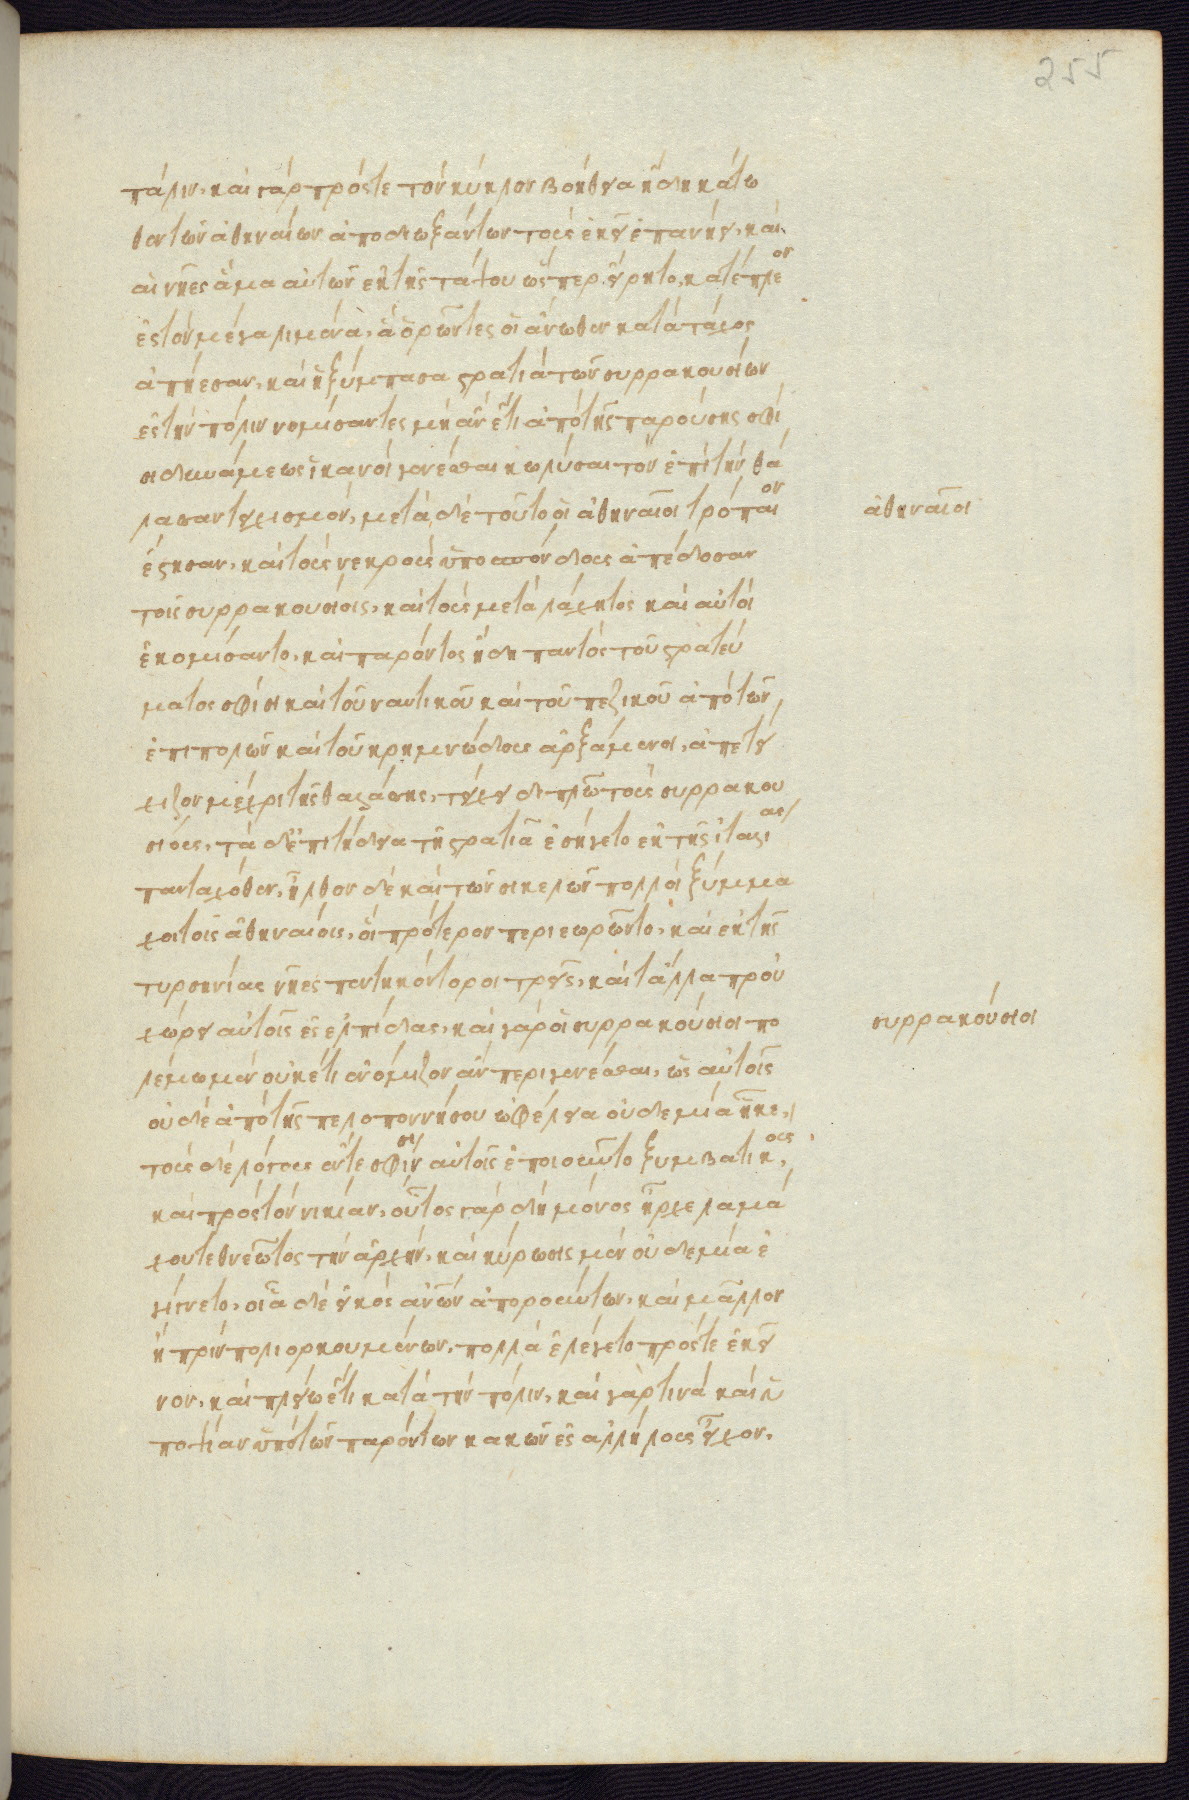 255
πάλιν, καὶ γὰρ πρός τε τὸν κύκλον βοήθεια ἤδη κάτω
θεν τῶν ἀθηναίων ἀποδιωξάντων τοὺς ἐκεῖ ἐπανήει, καὶ
αἱ νῆες ἅμα αὐτῶν ἐκ τῆς θάψου ὥσπερ εἴρητο, κατέπλεον
ἐς τὸν μέγα λιμένα, ἃ ὁρῶντες οἱ ἄνωθεν κατὰ τάχος
ἀπῄεσαν, καὶ ἡ ξύμπασα στρατιὰ τῶν συρρακουσίων
ἐς τὴν πόλιν νομίσαντες μὴ ἂν ἔτι ἀπὸ τῆς παρούσης σφί
σι δυνάμεως ἱκανοὶ γενέσθαι κωλῦσαι τὸν ἐπὶ τὴν θά
λασσαν τειχισμόν, μετὰ δὲ τοῦτο οἱ ἀθηναῖοι τρόπαιον
ἀθηναῖοι
ἔστησαν, καὶ τοὺς νεκροὺς ὑποσπόνδους ἀπέδοσαν
τοῖς συρρακουσίοις, καὶ τοὺς μετὰ λάχητος καὶ αὐτοὶ
ἐκομίσαντο, καὶ παρόντος ἤδη παντὸς τοῦ στρατεύ
ματος σφίσι καὶ τοῦ ναυτικοῦ καὶ τοῦ πεζικοῦ ἀπὸ τῶν
ἐπιπολῶν καὶ τοῦ κρημνώδους ἀρξάμενοι, ἀπετεί
χιζον μέχρι τῆς θαλάσσης, τείχει διπλῷ τοὺς συρρακου
σίους, τὰ δ' ἐπιτήδεια τῇ στρατιᾷ ἐσήγετο ἐκ τῆς ἰταλίας
πανταχόθεν, ἦλθον δὲ καὶ τῶν σικελῶν πολλοὶ ξύμμα
χοι τοῖς ἀθηναίοις, οἳ πρότερον περιεωρῶντο, καὶ ἐκ τῆς
τυρσηνίας νῆες πεντηκόντοροι τρεῖς, καὶ τἄλλα πρού
χώρει αὐτοῖς ἐς ἐλπίδας, καὶ γὰρ οἱ συρρακούσιοι πο
συρρακούσιοι
λέμω μὲν οὐκέτι ἐνόμιζον ἂν περιγενέσθαι, ὡς αὐτοῖς
οὐδὲ ἀπὸ τῆς πελοποννήσου ὠφέλεια οὐδεμία ἧκε,
τοὺς δὲ λόγους ἔν τε σφίσιν αὐτοῖς ἐποιοῦντο ξυμβατικούς,
καὶ πρὸς τὸν νικίαν, οὗτος γὰρ δὴ μόνος ἦρχε λαμά
χου τεθνεῶτος τὴν ἀρχήν, καὶ κύρωσις μὲν οὐδεμία ἐ
γίγνετο, οἷα δὲ εἰκὸς ἀνῶν ἀπορούντων, καὶ μᾶλλον
ἢ πρὶν πολιορκουμένων, πολλὰ ἐλέγετο πρός τε ἐκεῖ
νον, καὶ πλείω ἔτι κατὰ τὴν πόλιν, καὶ γάρ τινα καὶ ὑ
ποψίαν ὑπὸ τῶν παρόντων κακῶν ἐς ἀλλήλους εἶχον.